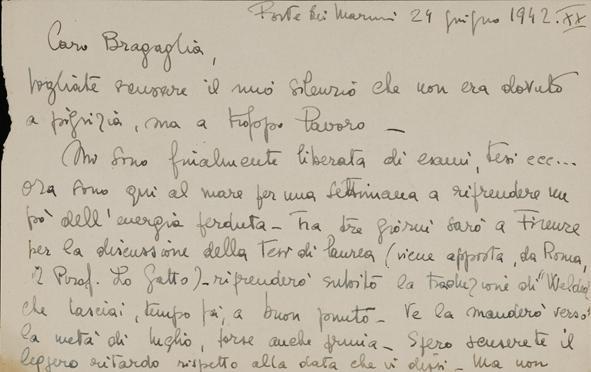 Forte dei Marmi 24 giugno 1942. XX
Caro Bragaglia,
vogliate scusare il mio silenzio che non era dovuto
a pigrizia, ma a troppo lavoro –
Mi sono finalmente liberata di esami, tesi ecc...
Ora sono qui al mare per una settimana a riprendere un
pò dell'energia perduta – Tra tre giorni sarò a Firenze
per la discussione della Tesi di laurea (viene apposta, da Roma,
il Prof. Lo Gatto) – riprenderò subito la traduzione di
che lasciai, tempo fa, a buon punto – Ve la manderò verso
la metà di luglio, forse anche prima – Spero scuserete il
leggero ritardo rispetto alla data che vi dissi – Ma non